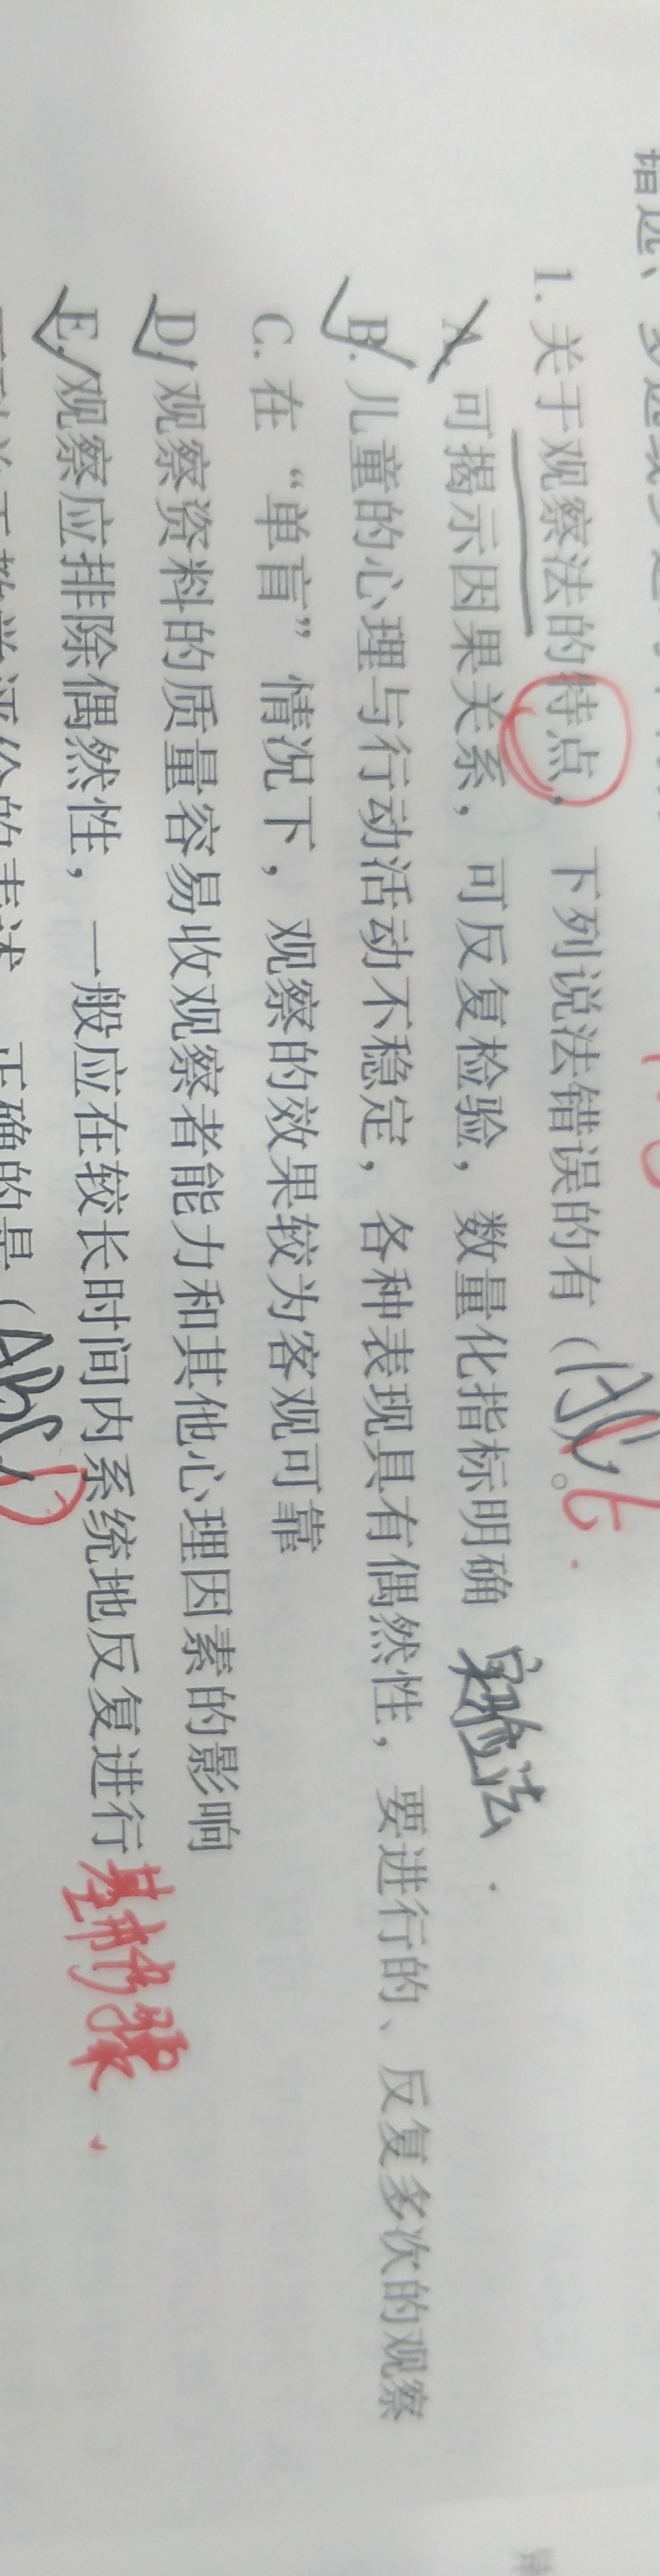 1. 关于观察法的特点，下列说法错误的有（AC E）。
A. 可揭示因果关系，可反复检验，数量化指标明确 实验法.
B. 儿童的心理与行动活动不稳定，各种表现具有偶然性，要进行的、反复多次的观察
C. 在“单盲”情况下，观察的效果较为客观可靠
D. 观察资料的质量容易收观察者能力和其他心理因素的影响
E. 观察应排除偶然性，一般应在较长时间内系统地反复进行 基本步骤.
正确的是（ABC D